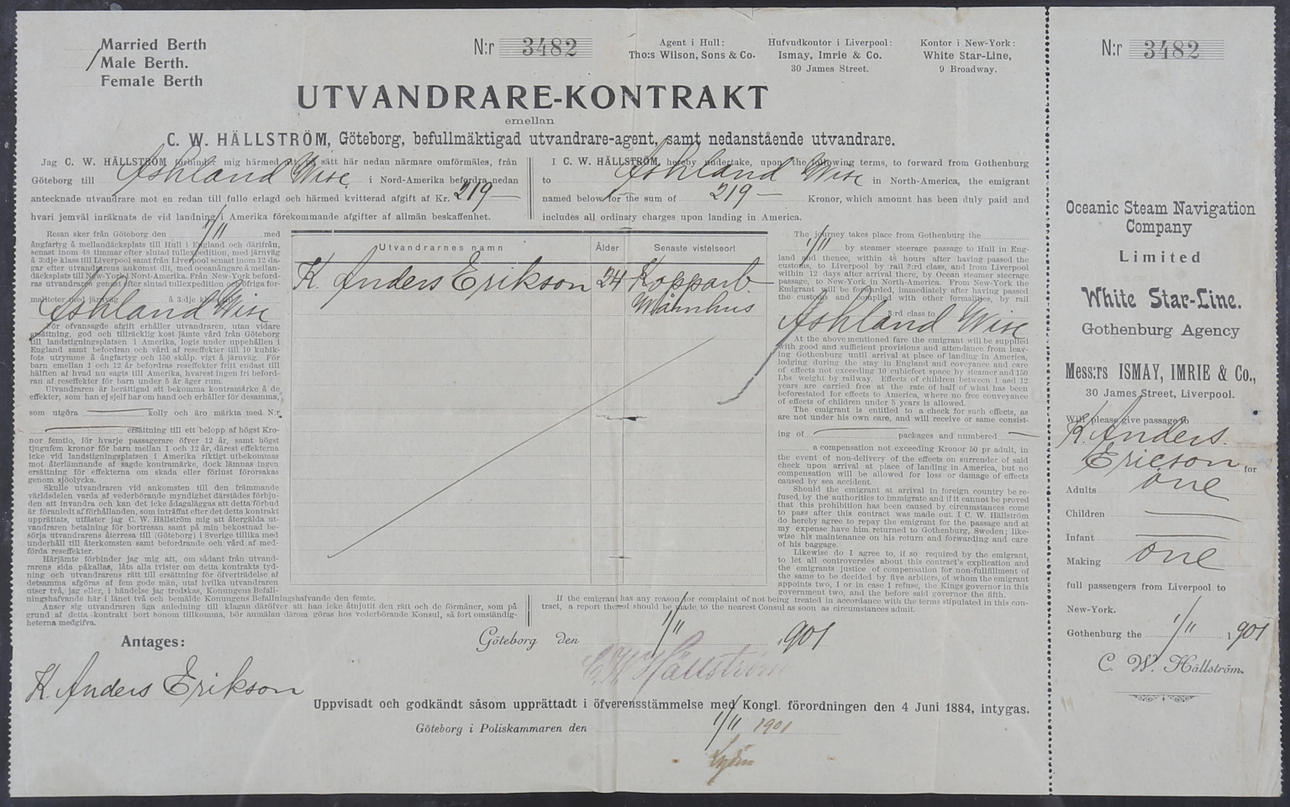 Married Berth
Male Berth.
Female Berth
N:r 3482
Agent i Hull:
Tho:s Wilson, Sons & Co.
Hufvudkontor i Liverpool:
Ismay, Imrie & Co.
30 James Street.
Kontor i New-York:
White Star-Line,
9 Broadway.
UTVANDRARE-KONTRAKT
emellan
C. W. HÄLLSTRÖM, Göteborg, befullmäktigad utvandrare-agent, samt nedanstående utvandrare.
Jag C. W. HÄLLSTRÖM förbinder mig härmed att, på sätt här nedan närmare omförmäles, från
Göteborg till Ashland Wisc. i Nord-Amerika befordra nedan
antecknade utvandrare mot en redan till fullo erlagd och härmed kvitterad afgift af Kr. 219—
hvari jemväl inräknats de vid landning i Amerika förekommande afgifter af allmän beskaffenhet.
I C. W. HÄLLSTRÖM, hereby undertake, upon the following terms, to forward from Gothenburg
to Ashland Wisc in North-America, the emigrant
named below for the sum of 219— Kronor, which amount has been duly paid and
includes all ordinary charges upon landing in America.
Resan sker från Göteborg den 1/11 med
ångfartyg å mellandäcksplats till Hull i England och därifrån,
senast inom 48 timmar efter slutad tullexpedition, med järnväg
å 3:dje klass till Liverpool samt från Liverpool senast inom 12 da-
gar efter utvandrarens ankomst dit, med oceanångare å mellan-
däcksplats till New-York i Nord-Amerika. Från New-York beford-
ras utvandraren genast efter slutad tullexpedition och öfriga for-
maliteter med järnväg å 3:dje klass till
Ashland Wisc
För ofvansagde afgift erhåller utvandraren, utan vidare
ersättning, god och tillräcklig kost jämte vård från Göteborg
till landstigningsplatsen i Amerika, logis under uppehållen i
England samt befordran och vård af reseffekter till 10 kubik-
fots utrymme å ångfartyg och 150 skålp. vigt å järnväg. För
barn emellan 1 och 12 år befordras reseffekter fritt endast till
hälften af hvad nu sagts till Amerika, hvarest ingen fri beford-
ran af reseffekter för barn under 5 år äger rum.
Utvandraren är berättigad att bekomma kontramärke å de
effekter, som han ej själf har om hand och erhåller för desamma,
som utgöra — kolly och äro märkta med N:r
— ersättning till ett belopp af högst Kro-
nor femtio, för hvarje passagerare öfver 12 år, samt högst
tjugufem kronor för barn mellan 1 och 12 år, därest effekterna
icke vid landstigningsplatsen i Amerika riktigt utbekommas
mot återlämnande af sagde kontramärke, dock lämnas ingen
ersättning för effekterna om skada eller förlust förorsakas
genom sjöolycka.
Skulle utvandraren vid ankomsten till den främmande
världsdelen varda af vederbörande myndighet därstädes förbju-
den att invandra och kan det icke ådagaläggas att detta förbud
är föranledt af förhållanden, som inträffat efter det detta kontrakt
upprättats, utfäster jag C. W. Hällström mig att återgälda ut-
vandraren betalning för bortresan samt på min bekostnad be-
sörja utvandrarens återresa till (Göteborg) i Sverige tillika med
underhåll till återkomsten samt befordrande och vård af med-
förda reseffekter.
Härjämte förbinder jag mig att, om sådant från utvand-
rarens sida påkallas, låta alla tvister om detta kontrakts tyd-
ning och utvandrarens rätt till ersättning för öfverträdelse af
detsamma afgöras af fem gode män, utaf hvilka utvandraren
utser två, jag eller, i händelse jag tredskas, Konungens Befall-
ningshafvande här i länet två och bemälde Konungens Befallningshafvande den femte.
Anser sig utvandraren äga anledning till klagan däröfver att han icke åtnjutit den rätt och de förmåner, som på
grund af detta kontrakt bort honom tillkomma, bör anmälan därom göras hos vederbörande Konsul, så fort omständig-
heterna medgifva.
Utvandrarnes namn
Ålder
Senaste vistelseort
K. Anders Erikson 24 Kopparb.
The journey takes place from Gothenburg the
1/11 by steamer steerage passage to Hull in Eng-
land and thence, within 48 hours after having passed the
customs, to Liverpool by rail 3:rd class, and from Liverpool
within 12 days after arrival there, by Ocean steamer steerage
passage, to New-York in North-America. From New-York the
Emigrant will be forwarded, immediately after having passed
the customs and complied with other formalities, by rail
3:rd class to
Ashland Wisc
At the above mentioned fare the emigrant will be supplied
with good and sufficient provisions and attendance from leav-
ing Gothenburg until arrival at place of landing in America,
lodging during the stay in England and conveyance and care
of effects not exceeding 10 cubicfeet space by steamer and 150
Lbs weight by railway. Effects of children between 1 and 12
years are carried free at the rate of half of what has been
beforestated for effects to America, where no free conveyance
of effects of children under 5 years is allowed.
The emigrant is entitled to a check for such effects, as
are not under his own care, and will receive or same consist-
ing of — packages and numbered —
a compensation not exceeding Kronor 50 pr adult, in
the event of non-delivery of the effects on surrender of said
check upon arrival at place of landing in America, but no
compensation will be allowed for loss or damage of effects
caused by sea accident.
Should the emigrant at arrival in foreign country be re-
fused by the authorities to immigrate and if it cannot be proved
that this prohibition has been caused by circumstances come
to pass after this contract was made out. I C. W. Hällström
do hereby agree to repay the emigrant for the passage and at
my expense have him returned to Gothenburg, Sweden; like-
wise his maintenance on his return and forwarding and care
of his baggage.
Likewise do I agree to, if so required by the emigrant,
to let all controversies about this contract's explication and
the emigrants justice of compensation for non-fulfillment of
the same to be decided by five arbiters, of whom the emigrant
appoints two, I or in case I refuse, the Kings governor in this
government two, and the before said governor the fifth.
If the emigrant has any reason for complaint of not being treated in accordance with the terms stipulated in this con-
tract, a report thereof should be made to the nearest Consul as soon as circumstances admit.
Antages:
K. Anders Erikson
Göteborg den 1/11 1901
C. W. Hällström
Uppvisadt och godkändt såsom upprättadt i öfverensstämmelse med Kongl. förordningen den 4 Juni 1884, intygas.
Göteborg i Poliskammaren den 1/11 1901
N:r 3482
Oceanic Steam Navigation
Company
Limited
White Star-Line.
Gothenburg Agency
Mess:rs ISMAY, IMRIE & Co.,
30 James Street, Liverpool.
Will please give passage to
K. Anders
Ericson for
Adults one
Children —
Infant —
Making one
full passengers from Liverpool to
New-York.
Gothenburg the 1/11 1901
C. W. Hällström.